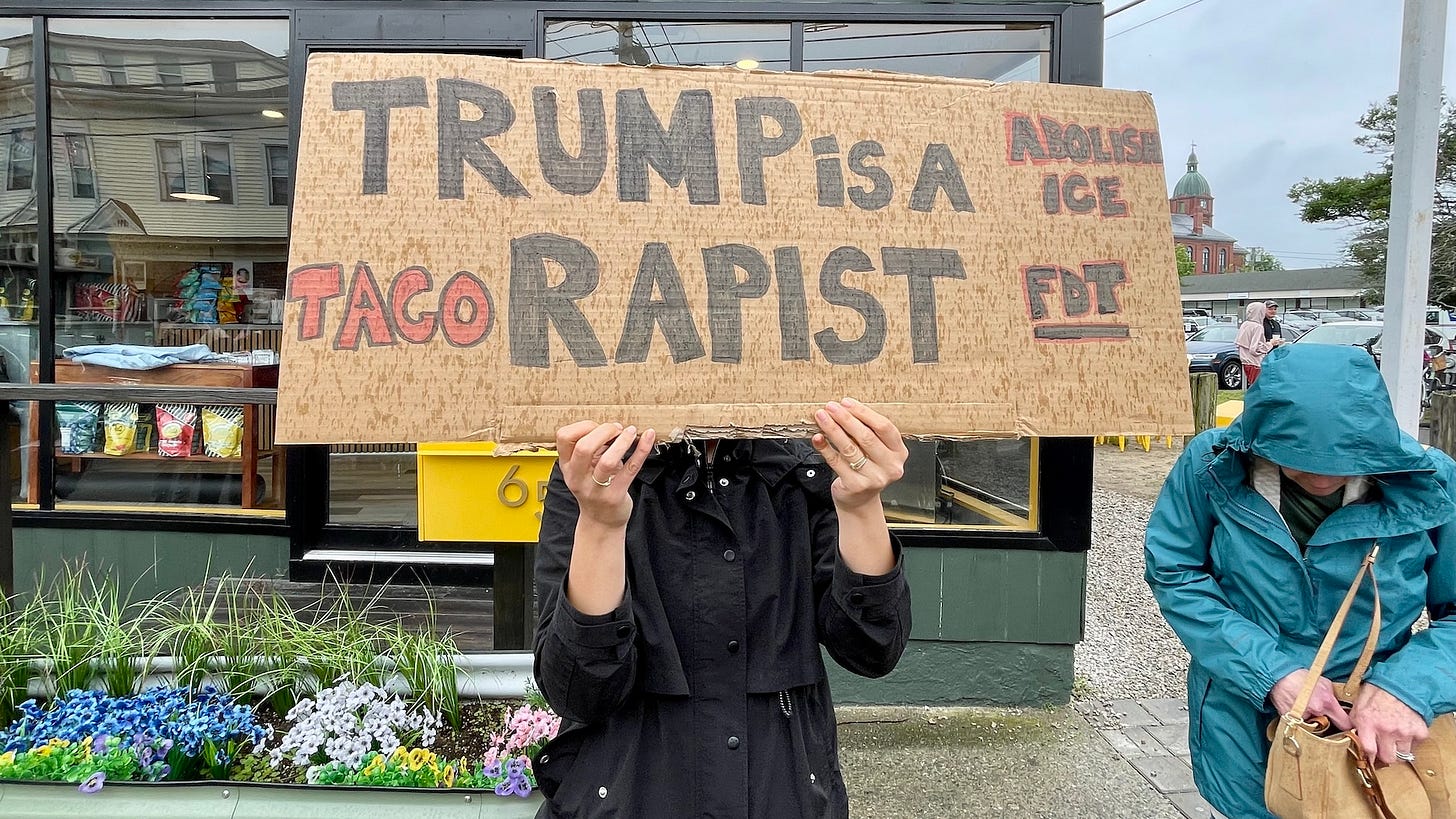 TRUMP is A
TACO RAPIST
ABOLISH
ICE
FDT
65